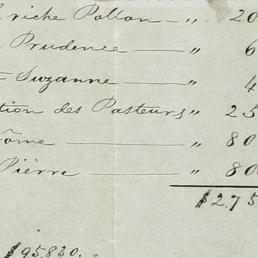 riche Pollon — " 20
Prudence — " 6
Suzanne — " 4
tion des Pasteurs " 25
rôme — " 80
Pièrre — " 80
$2.75
$95.830.